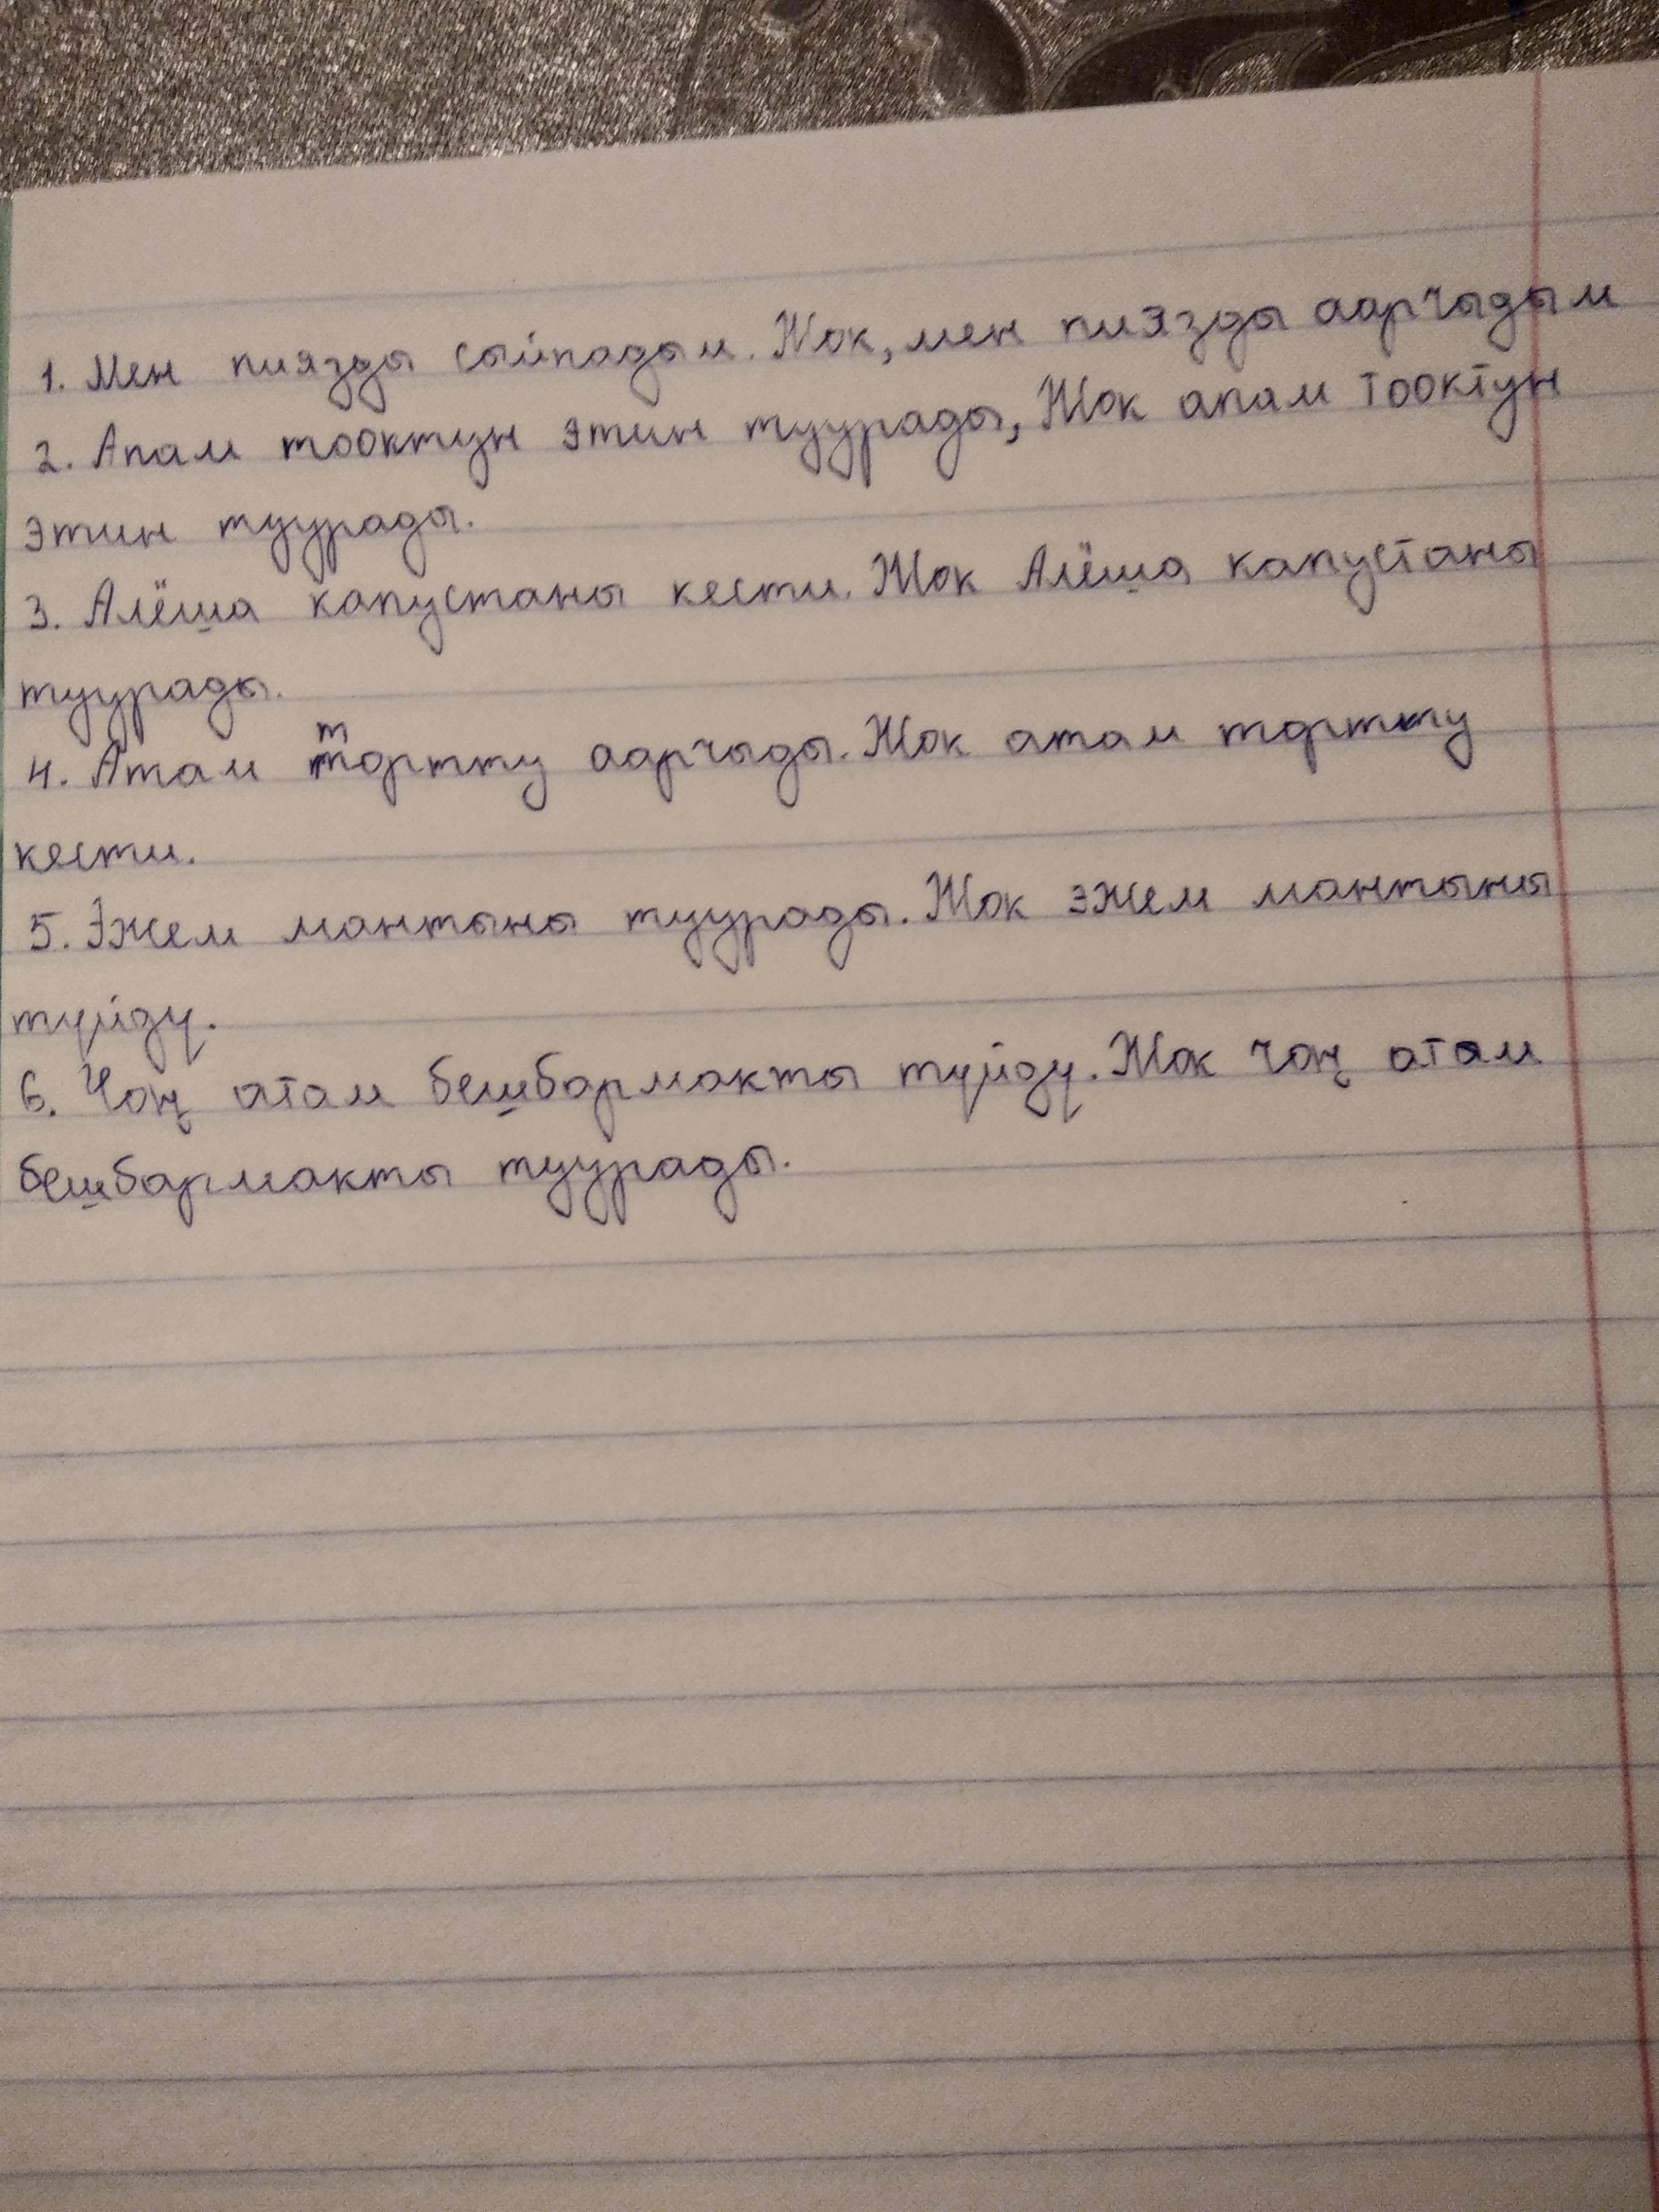 1. Мен пиязды сыйпадым. Жок, мен пиязды аарчыдым
2. Апам тооктун этин туурады, Жок апам тооктун
этин туурады.
3. Алёша капустаны кести. Жок Алёша капустаны
туурады.
4. Атам тортту аарчыды. Жок атам тортту
кести.
5. Эжем мантыны туурады. Жок эжем мантыны
түйдү.
6. Чоң атам бешбармакты түйдү. Жок чоң атам
бешбармакты туурады.